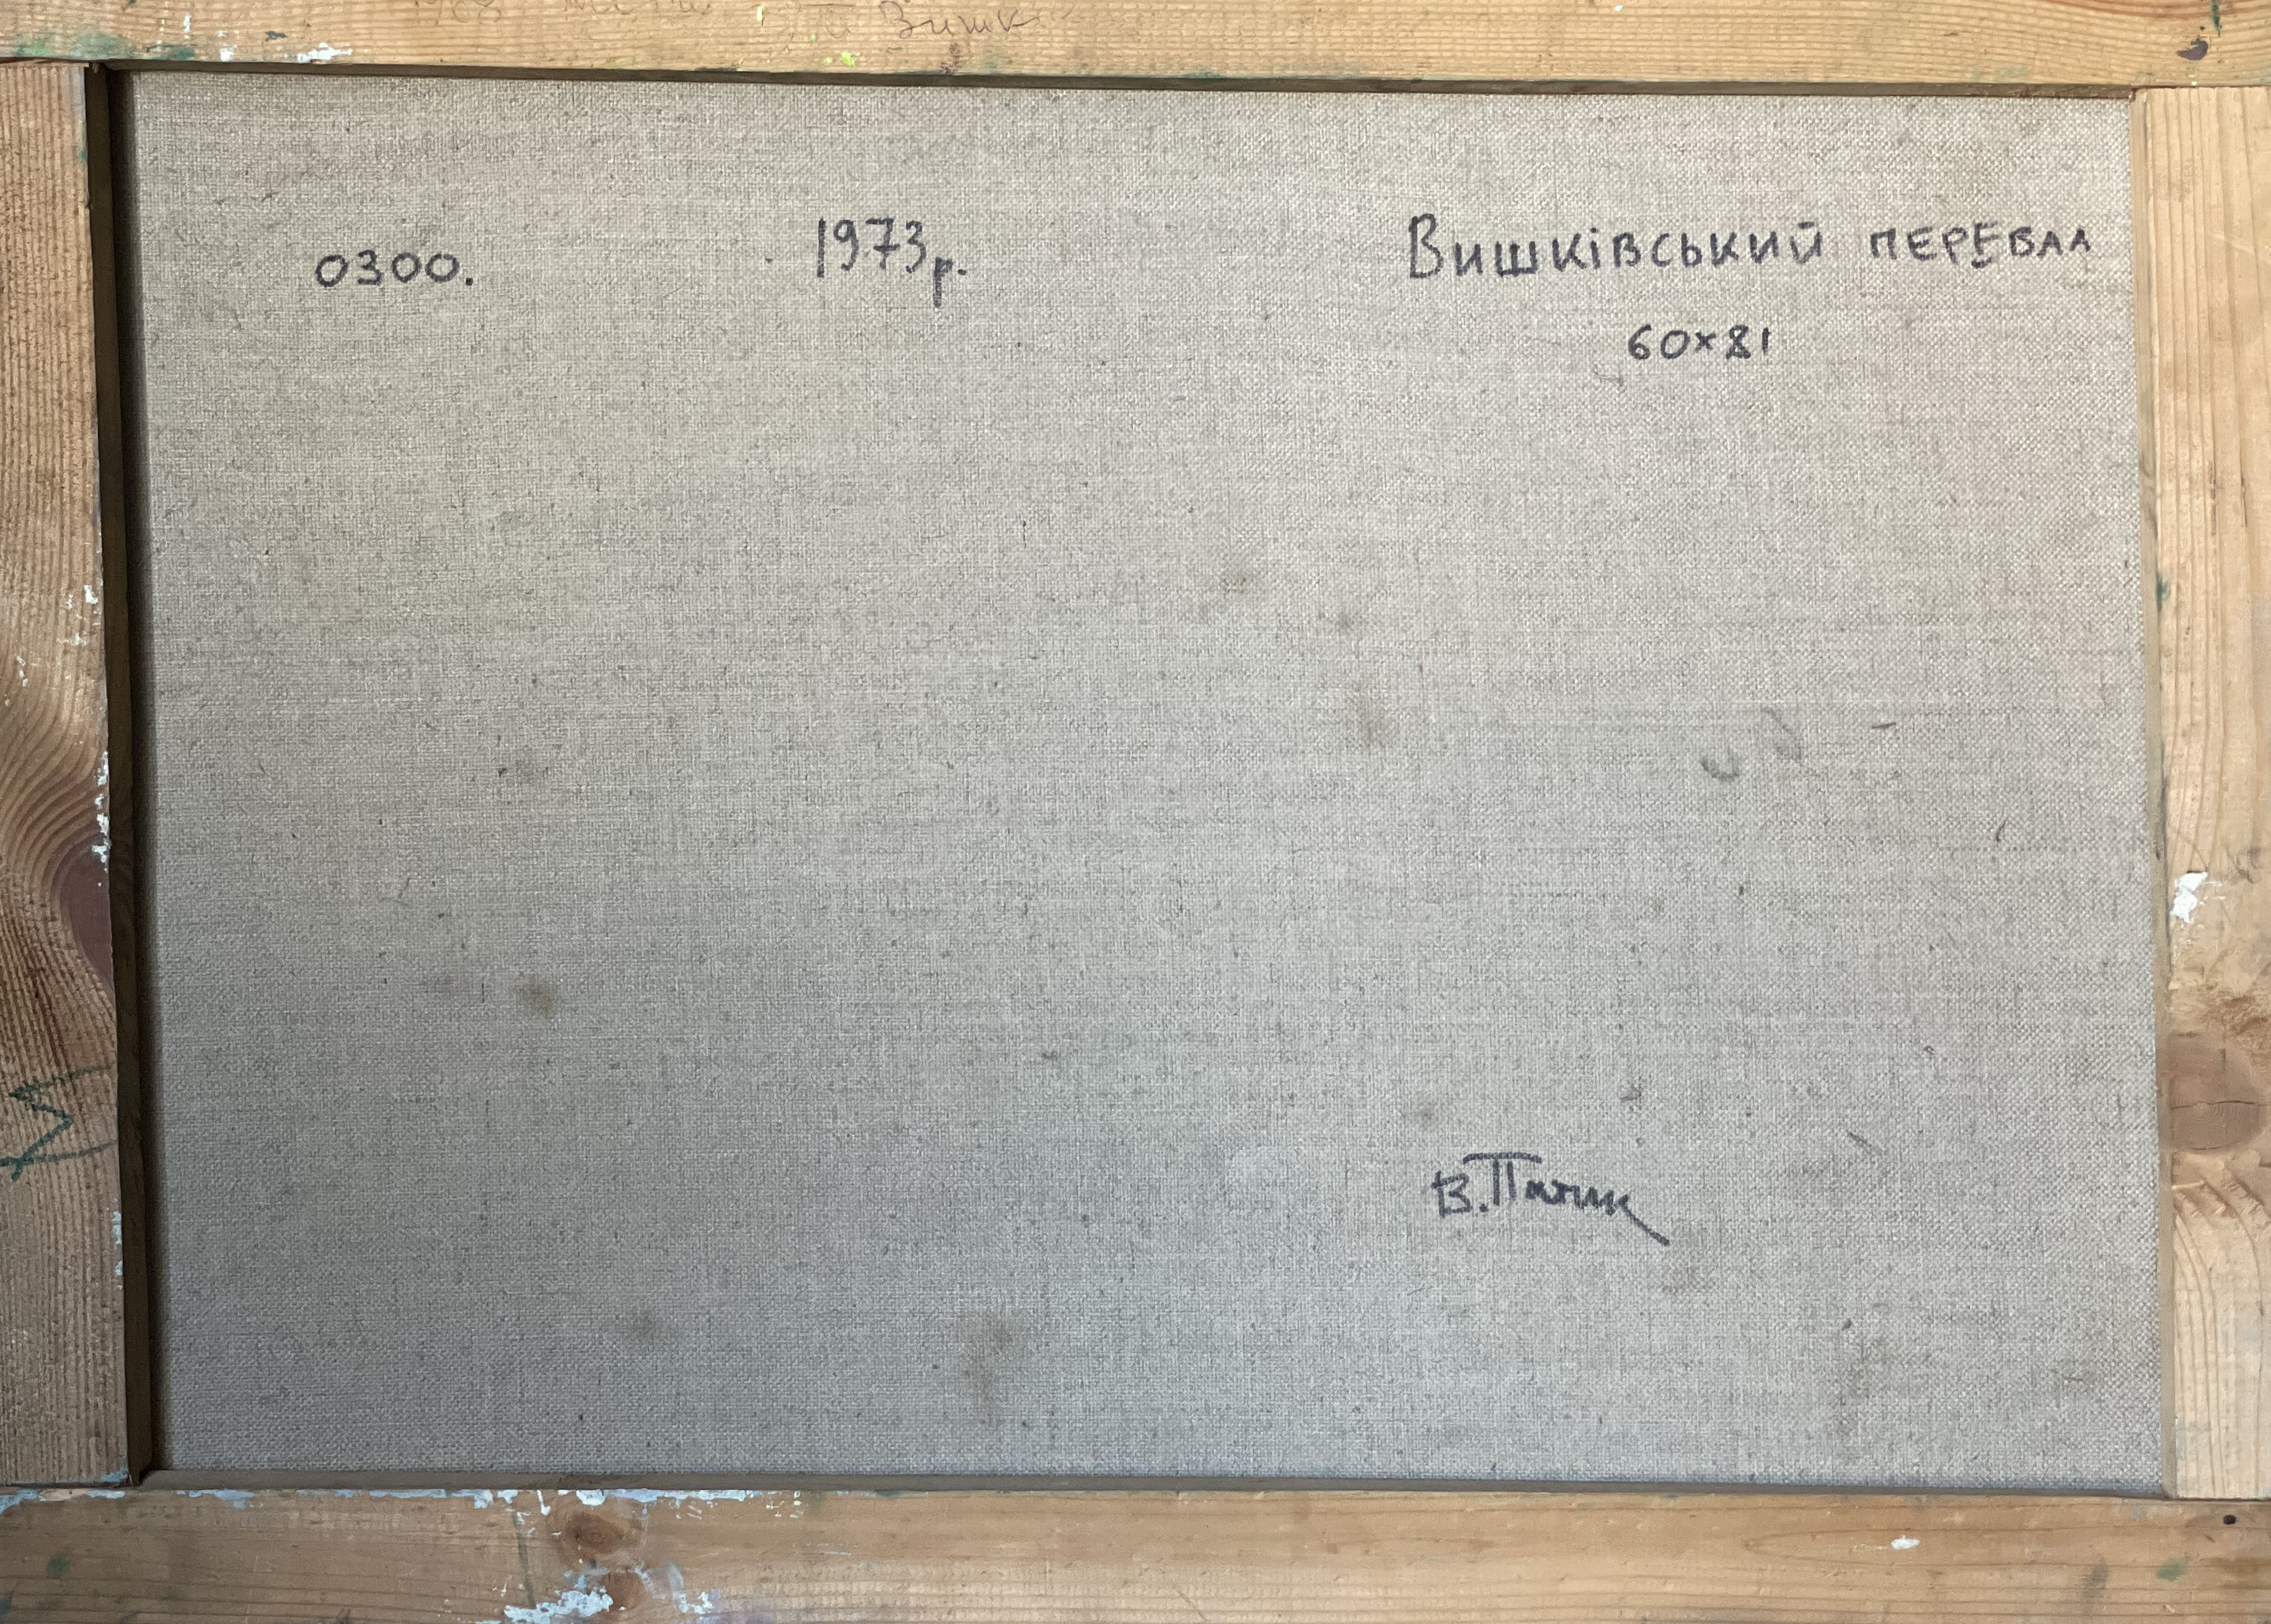 Вишк
0300. 1973р. Вишківський перевал
60×81
В. Патик